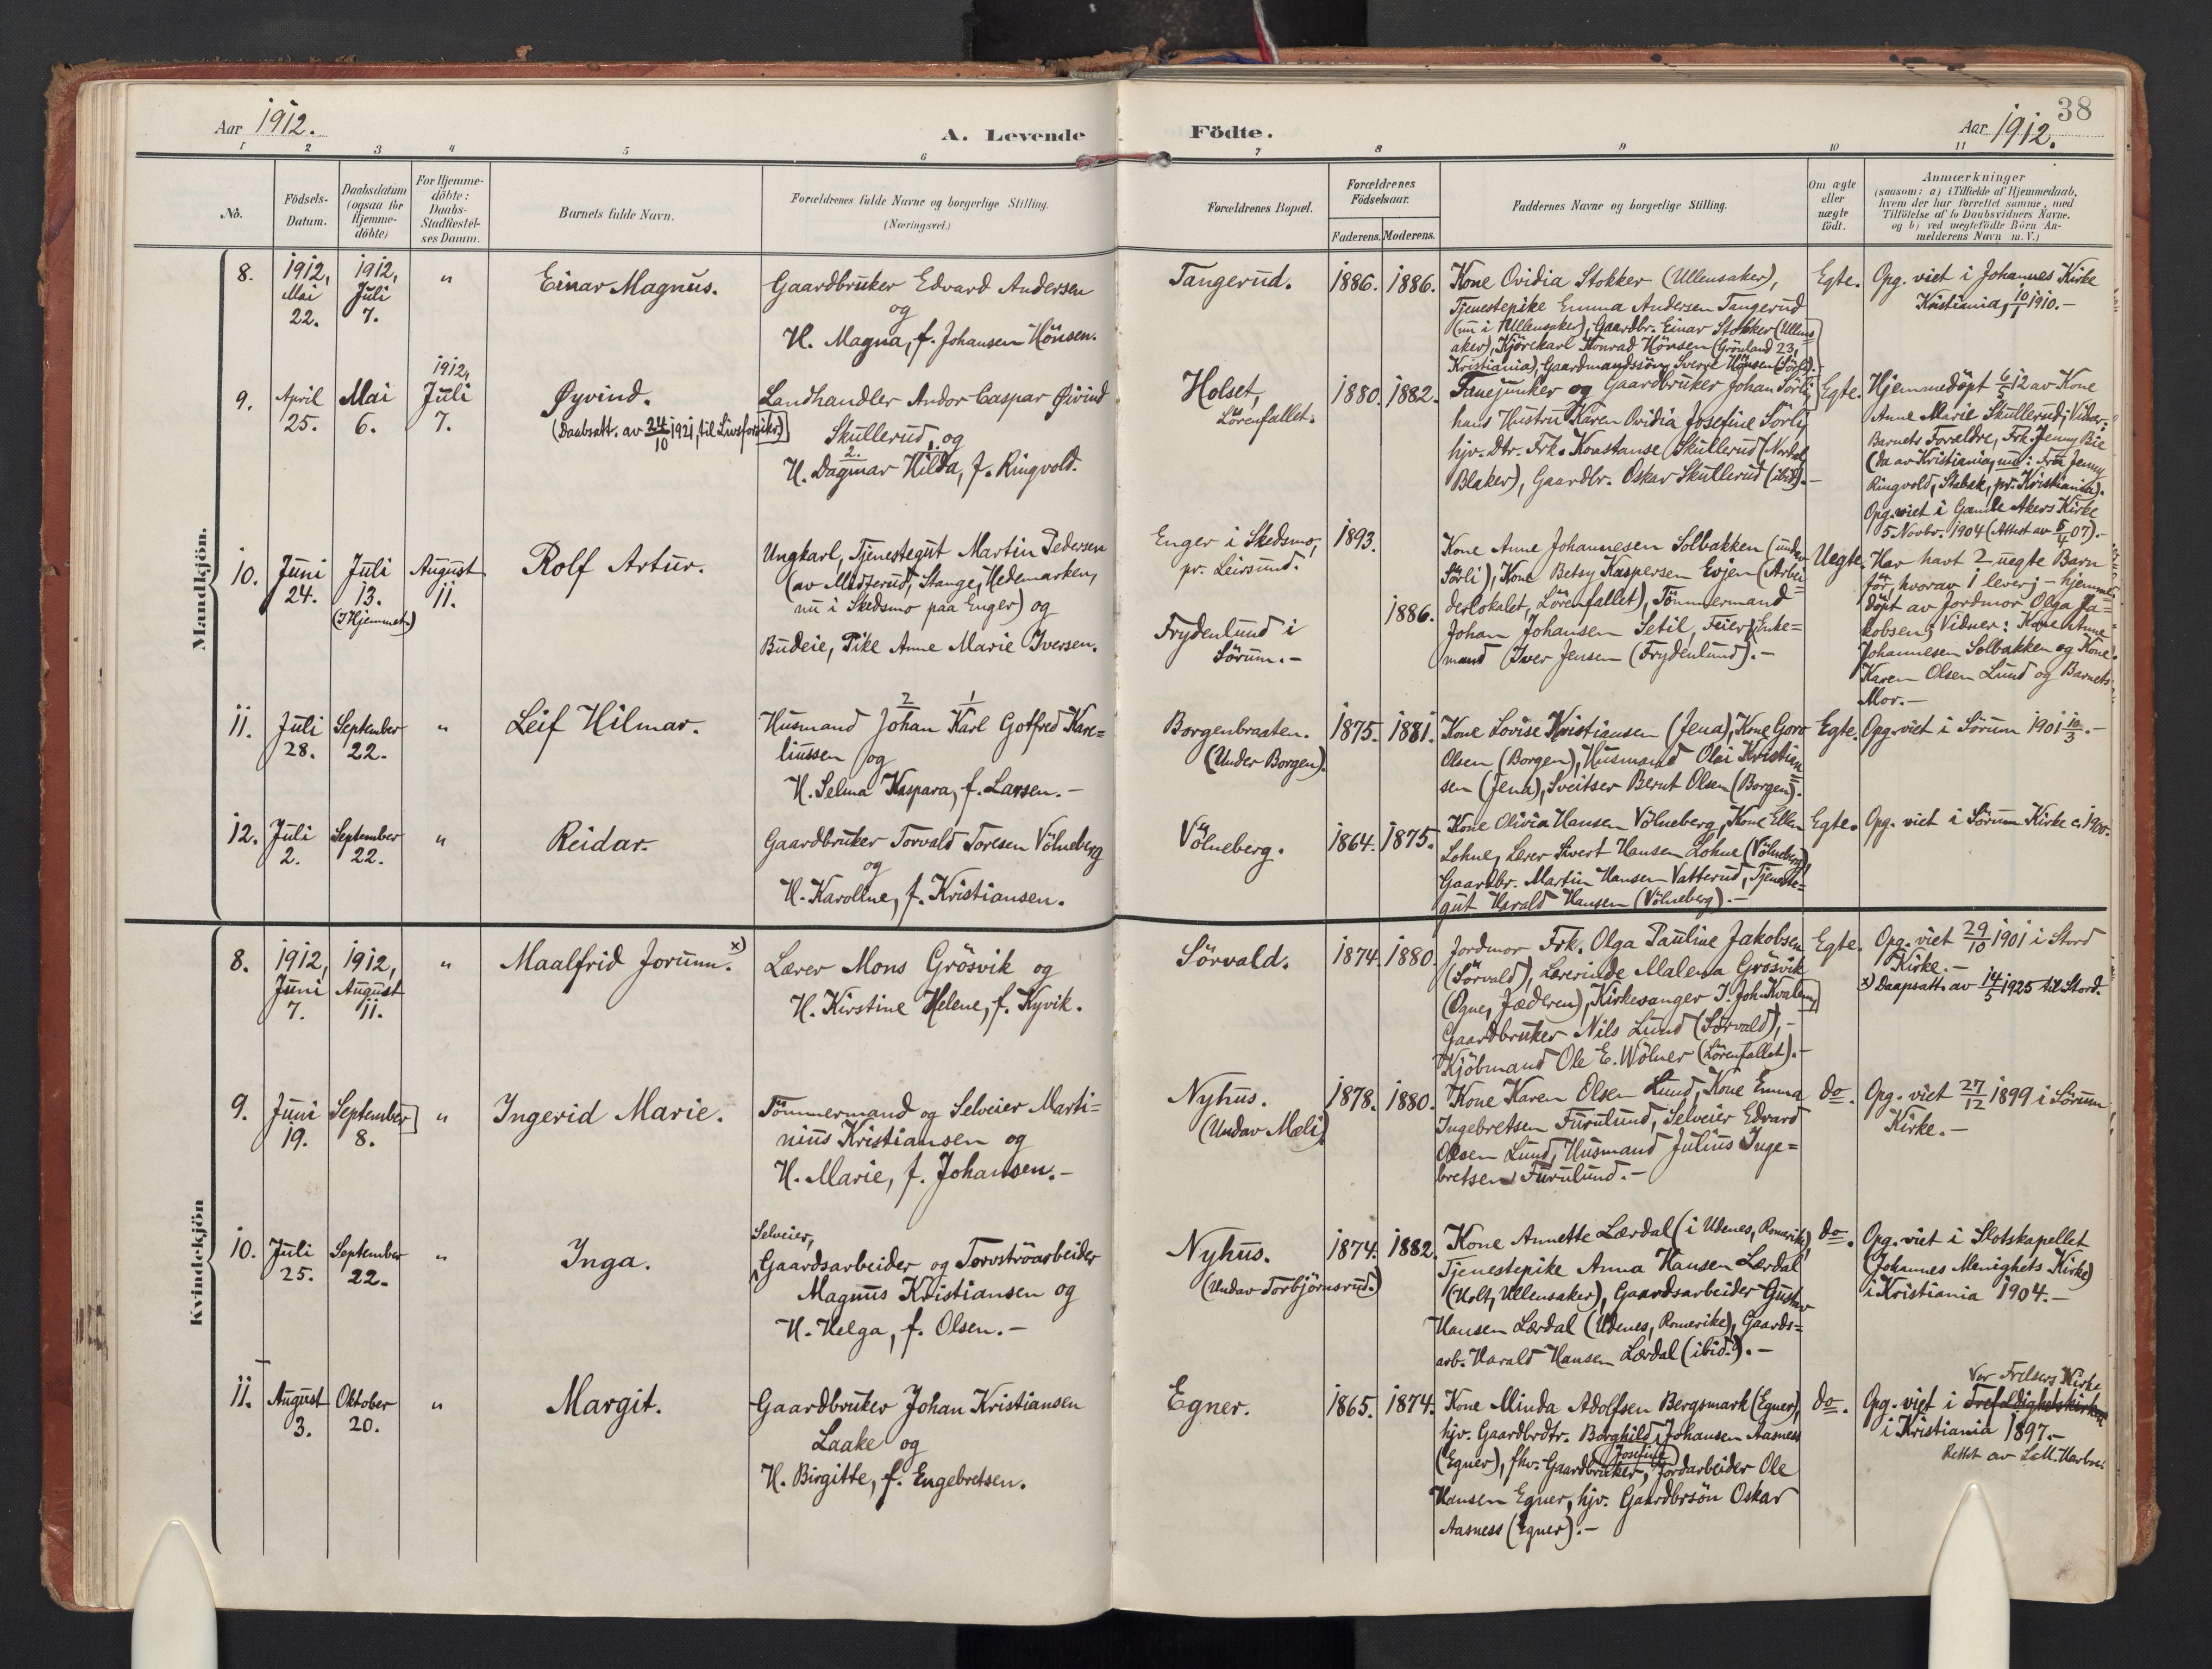 38
Aar 1912.
A. Levende
Födte.
Aar 1912.
1 2 3 4 5 6 7 8 9 10 11
No.
Födsels-
Datum.
Daabsdatum
(ogsaa for
Hjemme-
döbte)
For Hjemme-
döbte:
Daabs-
Stadfæstel-
ses Datum.
Barnets fulde Navn.
Forældrenes fulde Navne og borgerlige Stilling.
(Næringsvei.)
Forældrenes Bopæl.
Forældrenes
Födselsaar.
Faderens. Moderens.
Faddernes Navne og borgerlige Stilling.
Om ægte
eller
uægte
födt.
Anmærkninger
(saasom: a) i Tilfælde af Hjemmedaab,
hvem der har forrettet samme, med
Tilföielse af to Daabsvidners Navne,
og b) ved uegtefödte Börn An-
melderens Navn m. V.)
Mandkjön.
8.
1912,
Mai
22.
1912,
Juli
7.
"
Einar Magnus.
Gaardbruker Edvard Andersen
og
H. Magna, f. Johansen Hönsen.
Tangerud.
1886.
1886.
Kone Ovidia Stokker (Ullensaker),
Tjenestepike Emma Andersen Tangerud
(nu i Ullensaker), Gaardbr. Einar Stokker (Ullens=
aker), Kjörekarl Konrad Hönsen (Grönland 23,
Kristiania), Gaardmandssön Sverre Hönsen (Sörli).
Egte.
Opg. viet i Johannes Kirke
Kristiania, 10/1 1910.-
9.
April
25.
Mai
6.
1912,
Juli
7.
Øyvind.
(Daabsatt. av 24/10 1921, til Livsforsikr.)
Landhandler Andor Caspar Øivind
Skullerud, og
2.
H. Dagmar Hilda, f. Ringvold.
Holset,
Lörenfallet.
1880.
1882.
Fanejunker og Gaardbruker Johan Sörli,
hans Hustru Karen Ovidia Josefine Sörli,
hjv. Dtr. Frk. Konstanse Skullerud (Nordal
Blaker), Gaardbr. Oskar Skullerud (ibid).-
Egte.
Hjemmedöpt 6/5 12 av Kone
Anne Marie Skullerud; Vidner:
Barnets Forældre, Frk. Jenny Bie
(da av Kristiania, nu: Fru Jenny
Ringvold, Stabæk, pr. Kristiania).
Opg. viet i Gamle Akers Kirke
5. Novbr. 1904 (Attest av 5/4 07).-
10.
Juni
24.
Juli
13.
(I Hjemmet)
August
11.
Rolf Artur.
Ungkarl, Tjenestegut Martin Pedersen
(av Mosterud, Stange, Hedemarken,
nu i Skedsmo paa Enger) og
Budeie, Pike Anne Marie Iversen.
Enger i Skedsmo,
pr. Leirsund.
Frydenlund i
Sörum.-
1893.
1886.
Kone Anne Johannesen Solbakken (under
Sörli), Kone Betsy Kaspersen Evjen (Arbei=
derlokalet, Lörenfallet), Tömmermand
Johan Johansen Setil, Feier, Enke=
mand Iver Jensen (Frydenlund).-
Uegte.
Har havt 2 uegte Barn
för, hvorav 1 lever; - hjemme
döpt av Jordmor Olga Ja=
kobsen; Vidner: Kone Anne
Johannesen Solbakken og Kone
Karen Olsen Lund og Barnets
Mor.-
11.
Juli
28.
September
22.
"
Leif Hilmar.
2 1
Husmand Johan Karl Gotfred Kare=
liussen og
H. Selma Kaspara, f. Larsen.-
Borgenbraaten.
(Under Borgen).
1875.
1881.
Kone Lovise Kristiansen (Jena), Kone Goro
Olsen (Borgen), Husmand Olai Kristian=
sen (Jena), Sveitser Bernt Olsen (Borgen).
Egte.
Opg. viet i Sörum 1901 10/3.-
12.
Juli
2.
September
22.
"
Reidar.
Gaardbruker Torvald Toresen Völneberg
og
H. Karoline, f. Kristiansen.
Völneberg.
1864.
1875.
Kone Olivia Hansen Völneberg, Kone Ellen
Lohne, Lærer Sivert Hansen Lohne (Völneberg)
Gaardbr. Martin Hansen Vatterud, Tjeneste=
gut Harald Hansen (Völneberg).-
Egte.
Opg. viet i Sörum Kirke c. 1900.
Kvindekjön
8.
1912,
Juni
7.
1912,
August
11.
"
Maalfrid Jorunn. x)
Lærer Mons Grösvik og
H. Kirstine Helene, f. Kyvik.
Sörvald.
1874.
1880.
Jordmor Frk. Olga Pauline Jakobsen
(Sörvald), Lærerinde Malena Grösvik
(Ogne, Jæderen), Kirkesanger J. Joh. Kvalem,
Gaardbruker Nils Lund (Sörvald),-
Kjöbmand Ole E. Wölner (Lörenfallet).-
Egte.
Opg. viet 29/10 1901 i Stord
Kirke.-
x) Daapsatt. av 14/5 1925 til Stord.
9.
Juni
19.
September
8.
"
Ingerid Marie.
Tömmermand og Selveier Marti=
nius Kristiansen og
H. Marie, f. Johansen.-
Nyhus.
(Undav Mæli)
1878.
1880.
Kone Karen Olsen Lund, Kone Emma
Ingebretsen Furulund, Selveier Edvard
Olsen Lund, Husmand Julius Inge=
bretsen Furulund.-
do.
Opg. viet 27/12 1899 i Sörum
Kirke.-
10.
Juli
25.
September
22.
"
Inga.
Selveier,
Gaardsarbeider og Torvströarbeider
Magnus Kristiansen og
H. Helga, f. Olsen.-
Nyhus.
(Undav Torbjörnsrud.)
1874.
1882.
Kone Annette Lærdal (i Udenes, Romerike),
Tjenestepike Anna Hansen Lærdal
(Holt, Ullensaker), Gaardsarbeider Gustav
Hansen Lærdal (Udenes, Romerike), Gaards=
arb. Harald Hansen Lærdal (ibid.).-
do.
Opg. viet i Slotskapellet
(Johannes Menighets Kirke)
i Kristiania 1904.-
11.
August
3.
Oktober
20.
"
Margit.
Gaardbruker Johan Kristiansen
Laake og
H. Birgitte, f. Engebretsen.
Egner.
1865.
1874.
Kone Minda Adolfsen Bergsmark (Egner),
hjv. Gaardbrdtr. Borghild Johansen Aasness
Josefine
(Egner), fhv. Gaardbruker, Jordarbeider Ole
Hansen Egner, hjv. Gaardbrsön Oskar
Aasness (Egner).-
do.
Vor Frelsers Kirke
Opg. viet i Trefoldighetskirken
i Kristiania 1897.-
Rettet av